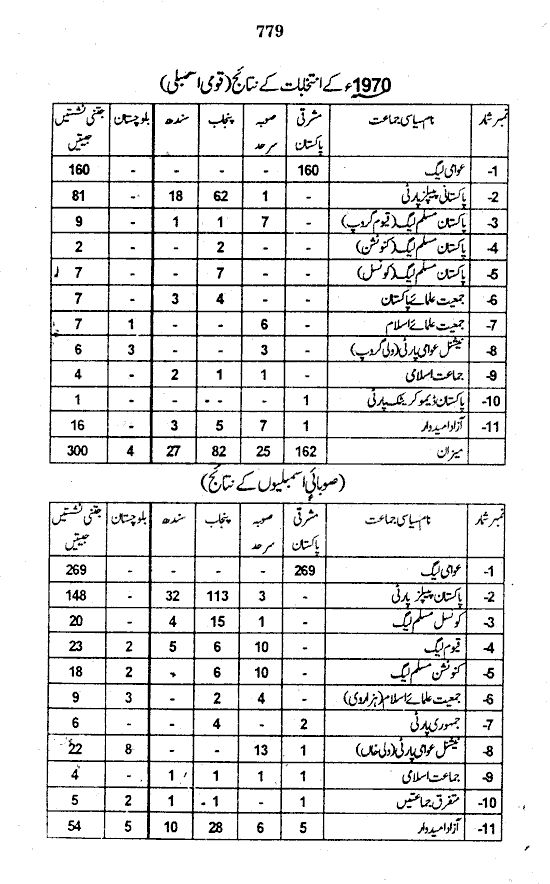 779
1970ء کے انتخابات کے نتائج (قومی اسمبلی)
نمبر شمار نام سیاسی جماعت مشرقی پاکستان صوبہ سرحد پنجاب سندھ بلوچستان جتنی نشستیں جیتیں
1- عوامی لیگ 160 - - - - 160
2- پاکستانی پیپلز پارٹی - 1 62 18 - 81
3- پاکستان مسلم لیگ (قیوم گروپ) - 7 1 1 - 9
4- پاکستان مسلم لیگ (کنونشن) - - 2 - - 2
5- پاکستان مسلم لیگ (کونسل) - - 7 - - 7
6- جمعیت علمائے پاکستان - - 4 3 - 7
7- جمعیت علمائے اسلام - 6 - - 1 7
8- نیشنل عوامی پارٹی (ولی گروپ) - 3 - - 3 6
9- جماعت اسلامی - 1 1 2 - 4
10- پاکستان ڈیموکریٹک پارٹی 1 - -- - - 1
11- آزاد امیدوار 1 7 5 3 - 16
میزان 162 25 82 27 4 300
(صوبائی اسمبلیوں کے نتائج)
نمبر شمار نام سیاسی جماعت مشرقی پاکستان صوبہ سرحد پنجاب سندھ بلوچستان جتنی نشستیں جیتیں
1- عوامی لیگ 269 - - - - 269
2- پاکستان پیپلز پارٹی - 3 113 32 - 148
3- کونسل مسلم لیگ - 1 15 4 - 20
4- قیوم لیگ - 10 6 5 2 23
5- کنونشن مسلم لیگ - 10 6 - 2 18
6- جمعیت علمائے اسلام (ہزاروی) - 4 2 - 3 9
7- جمہوری پارٹی 2 - 4 - - 6
8- نیشنل عوامی پارٹی (ولی خاں) 1 13 - - 8 22
9- جماعت اسلامی 1 1 1 1 - 4
10- متفرق جماعتیں 1 - 1 1 2 5
11- آزاد امیدوار 5 6 28 10 5 54